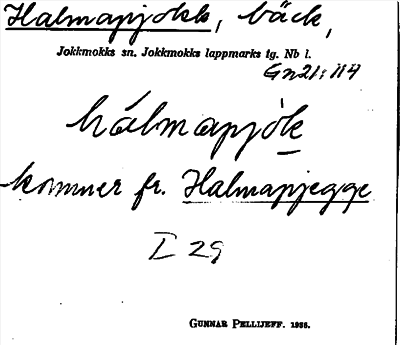 Halmapjokk, bäck,
Jokkmokks sn. Jokkmokks lappmarks tg. Nb l.
Gn21:114
hálmapjòk
kommer fr. Halmapjegge
I 29
GUNNAR PELLIJEFF. 1956.